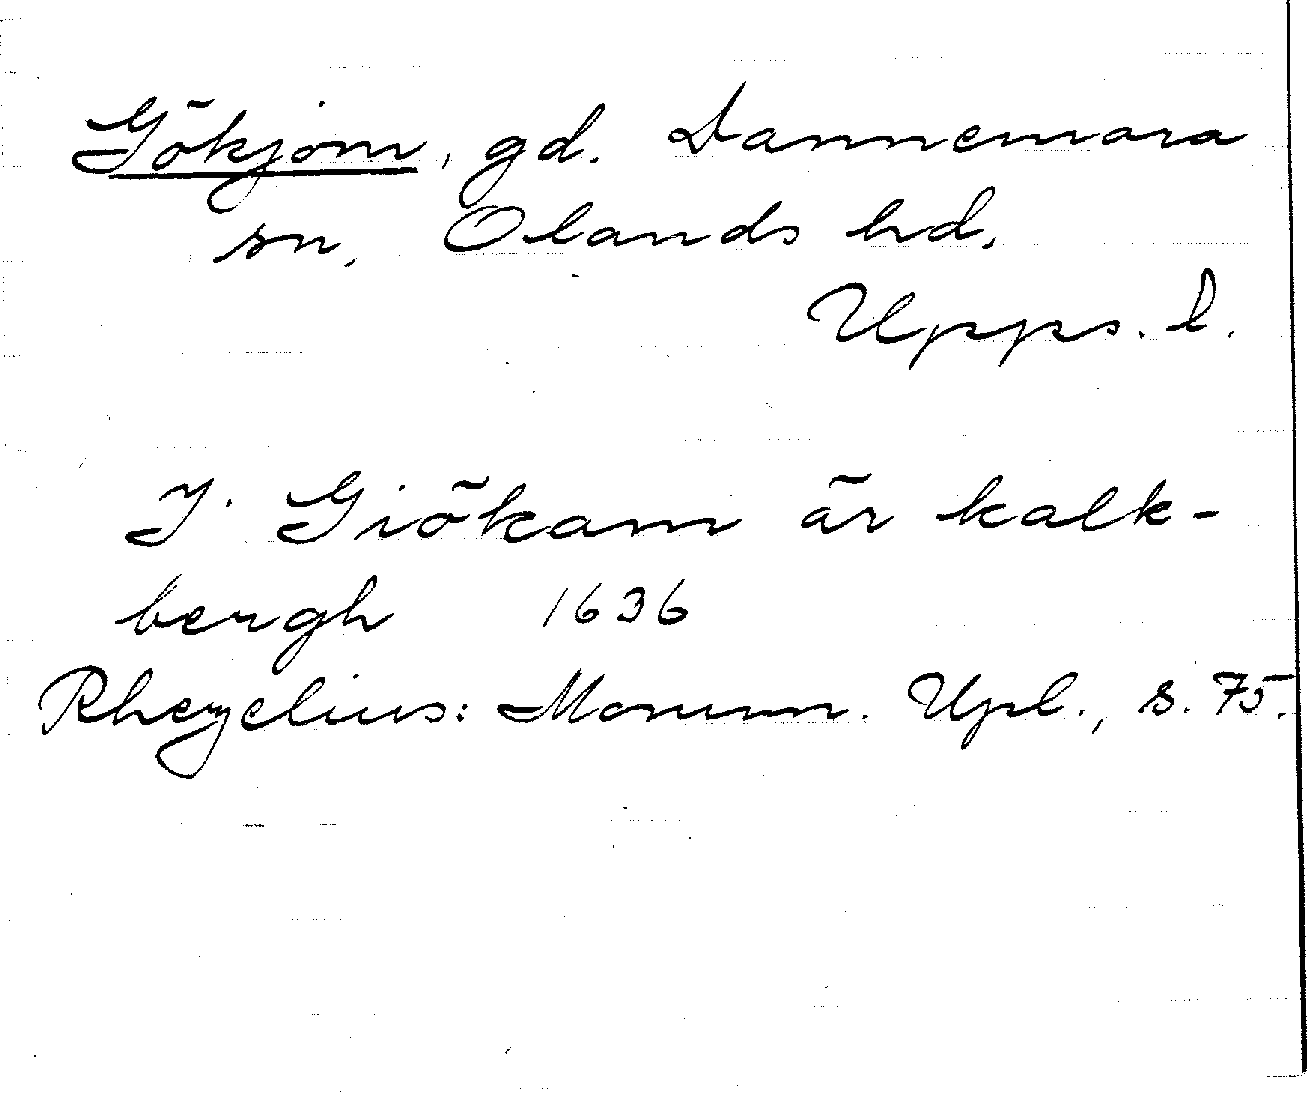 Gökjom, gd. Dannemora
sn, Olands hd,
Upps. l.
I Giökam är kalk-
bergh 1636
Rhezelius: Monum. Upl., s. 75.